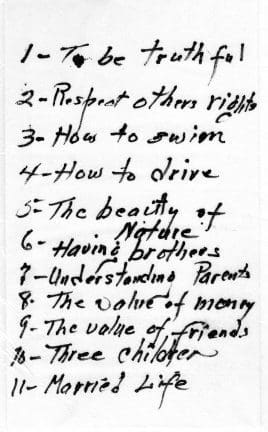 1- To be truthful
2- Respect others rights
3- How to swim
4- How to drive
5- The beauty of
Nature
6- Having brothers
7- Understanding Parents
8- The value of money
9- The value of friends
10- Three children
11- Married Life